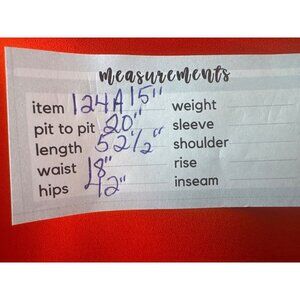 measurements
item 124A15" weight
pit to pit 20" sleeve
length 52 1/2" shoulder
waist 18" rise
hips 42" inseam